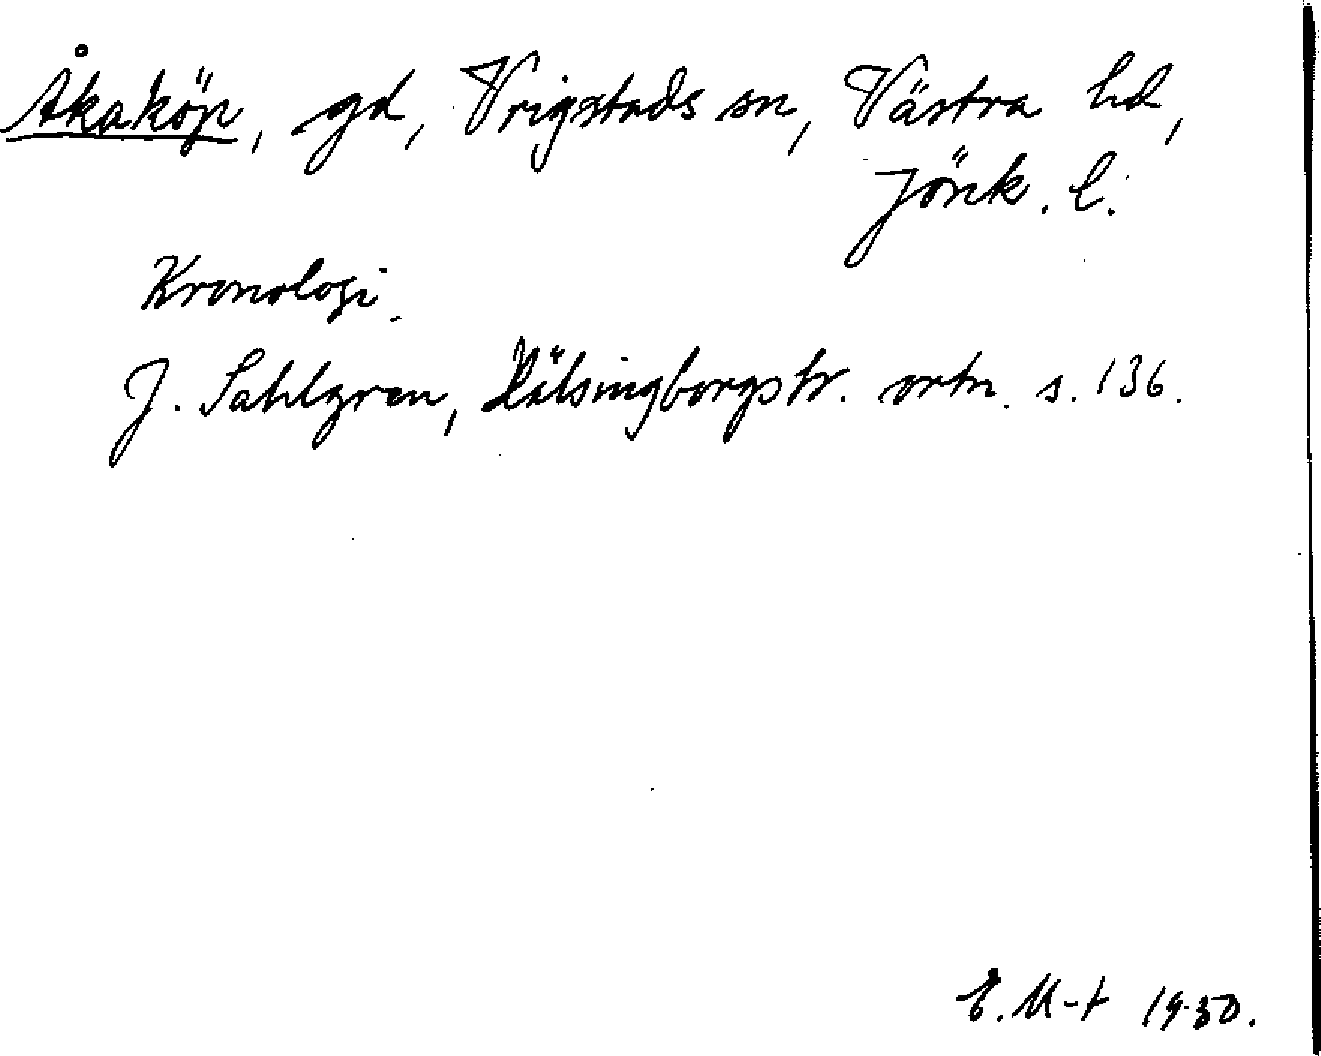 Åkaköp, gd, Vrigstads sn, Västra hd,
Jönk. l.
Kronologi.
J. Sahlgren, Hälsingborgstr. ortn. s. 136.
E. M-t 1930.